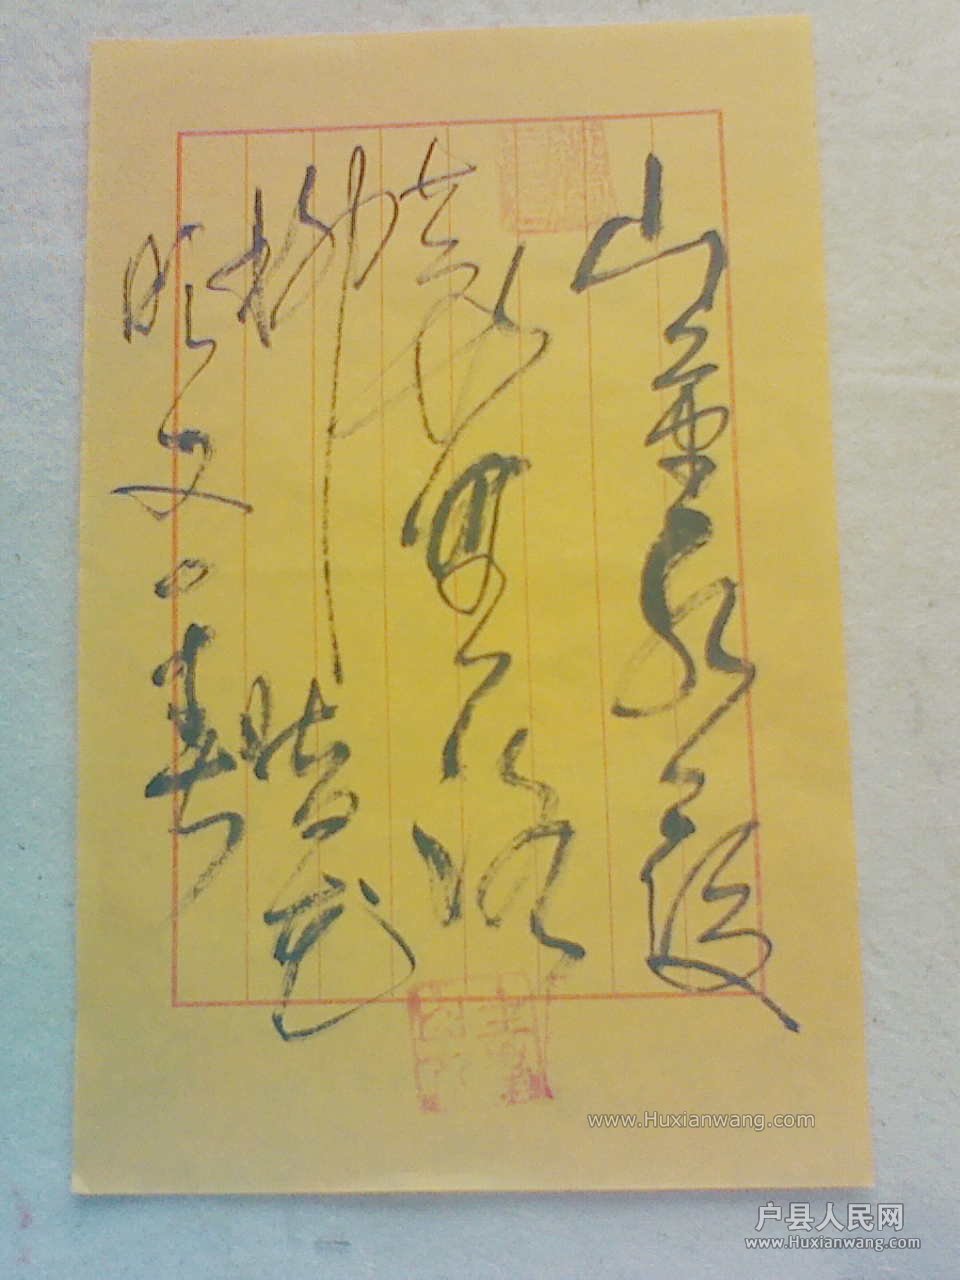 山重水復
疑無路
柳暗花
明又一
www.Huxianwang.com
户县人民网
www.Huxianwang.com